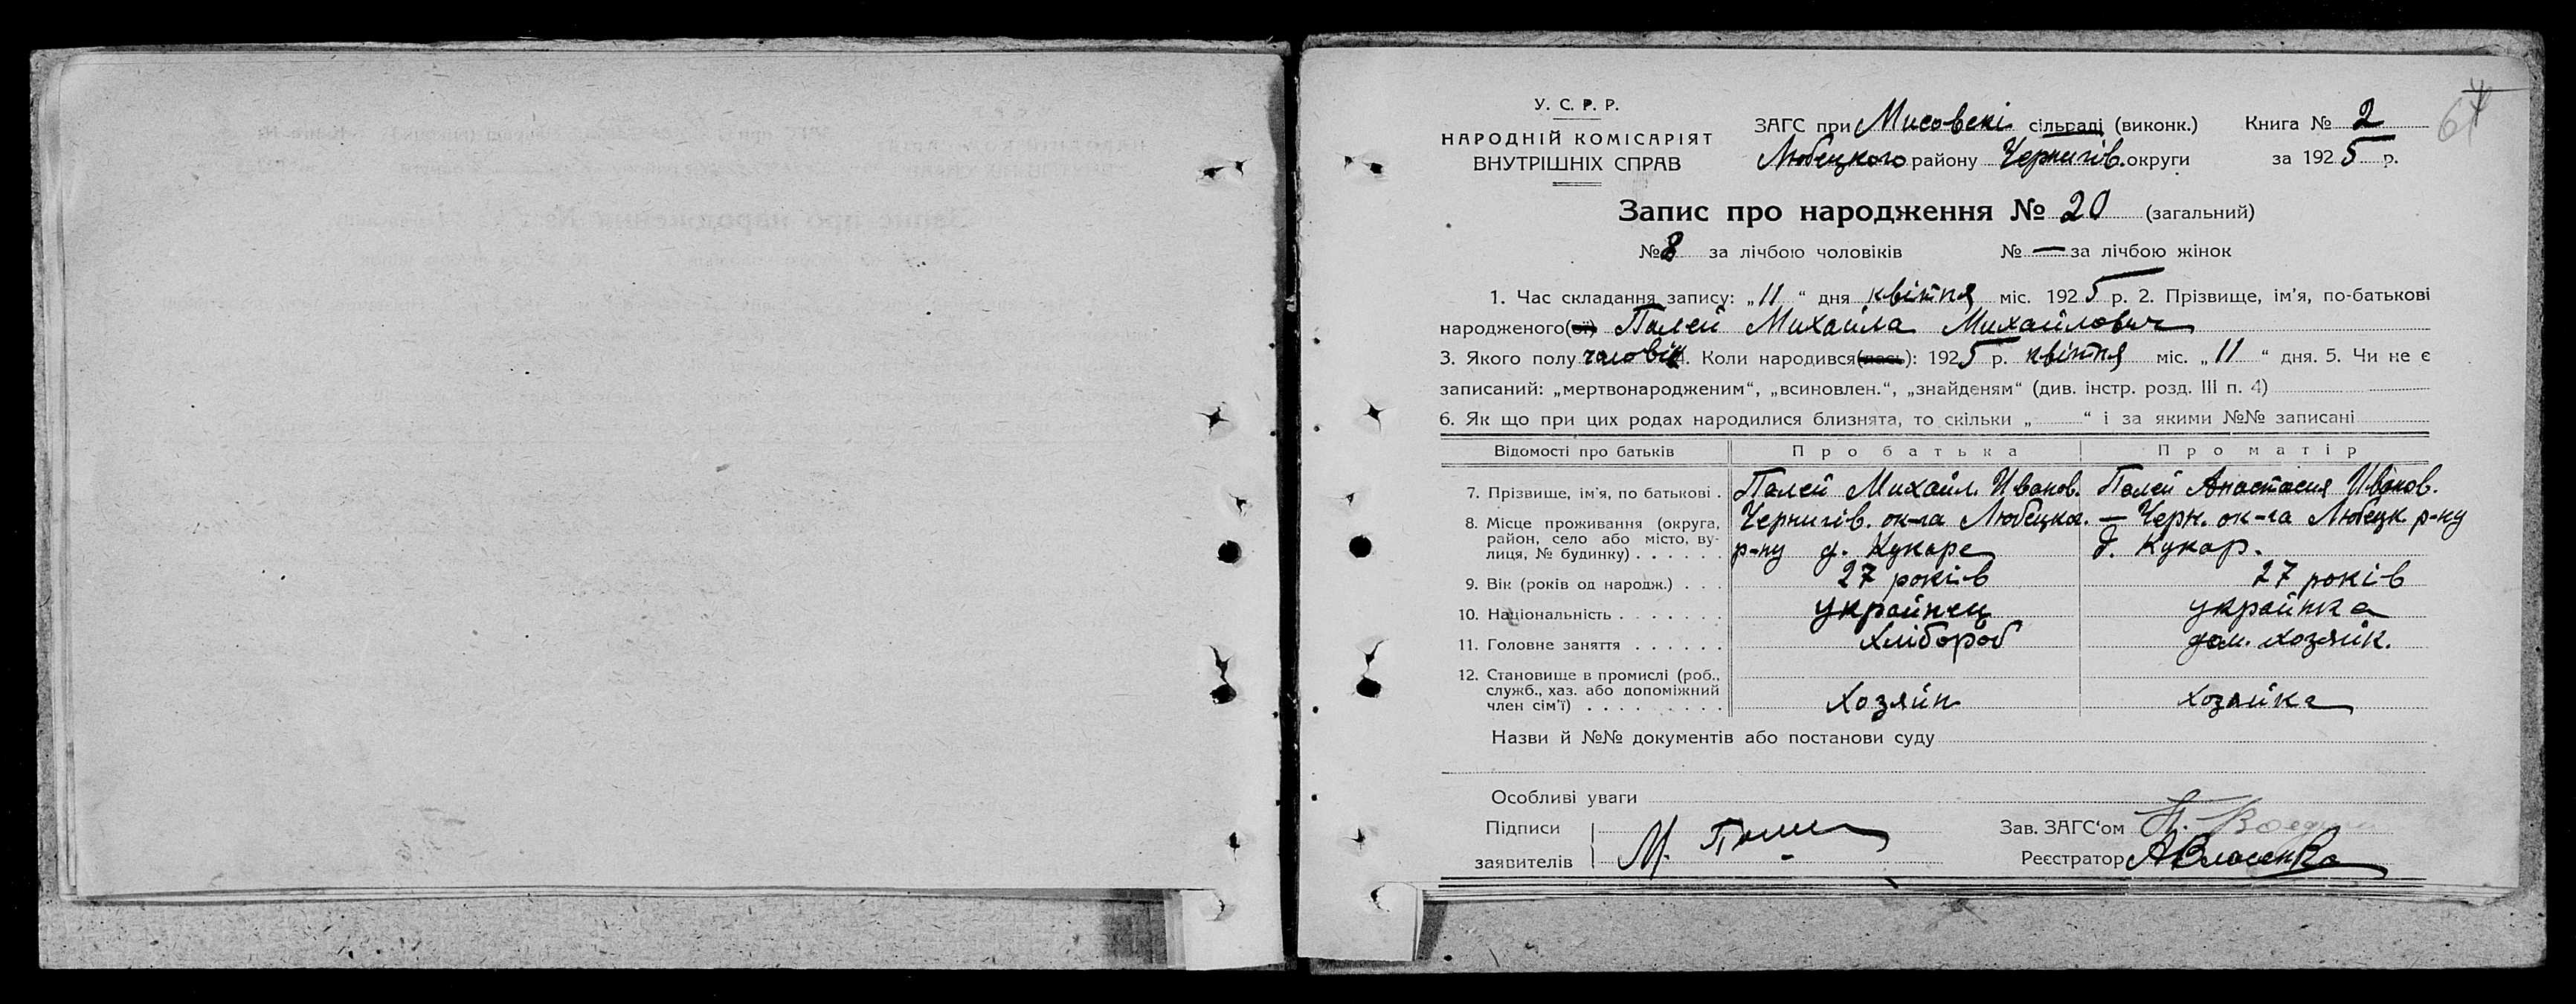 У. С. Р. Р.
НАРОДНІЙ КОМІСАРІЯТ
ВНУТРІШНІХ СПРАВ
ЗАГС при Мисовскі сільраді (виконк.) Книга № 2
Любецкого району Чернигів. округи за 1925 р.
Запис про народження № 20 (загальний)
№ 8 за лічбою чоловіків № — за лічбою жінок
1. Час складання запису: „11“ дня квітня міс. 1925 р. 2. Прізвище, ім'я, по-батькові
народженого(ої) Палей Михайла Михайлович
3. Якого полу чоловік 4. Коли народився(лась): 1925 р. квітня міс. „11“ дня. 5. Чи не є
записаний: „мертвонародженим“, „всиновлен.“, „знайденям“ (див. інстр. розд. III п. 4)
6. Як що при цих родах народилися близнята, то скільки „ “ і за якими №№ записані
Відомості про батьків Про батька Про матір
7. Прізвище, ім'я, по батькові . Палей Михайл Иванов. Палей Анастасия Иванов.
8. Місце проживання (округа, Чернигів. ок-га Любецког. — Черн. ок-га Любецк. р-ну
район, село або місто, ву- р-ну д. Кукаре д. Кукар.
лиця, № будинку) . . . . . .
9. Вік (років од народж.) . . . 27 років 27 років
10. Національність . . . . . . . украйнец украйнка
11. Головне заняття . . . . . . Хлібороб дом. хозяйк.
12. Становище в промислі (роб.,
служб., хаз. або допоміжний
член сім'ї) . . . . . . . . . Хозяйн хозяйка
Назви й №№ документів або постанови суду
Особливі уваги
Підписи
заявителів М. Палей
Зав. ЗАГС'ом П.
Реєстратор А Власенко